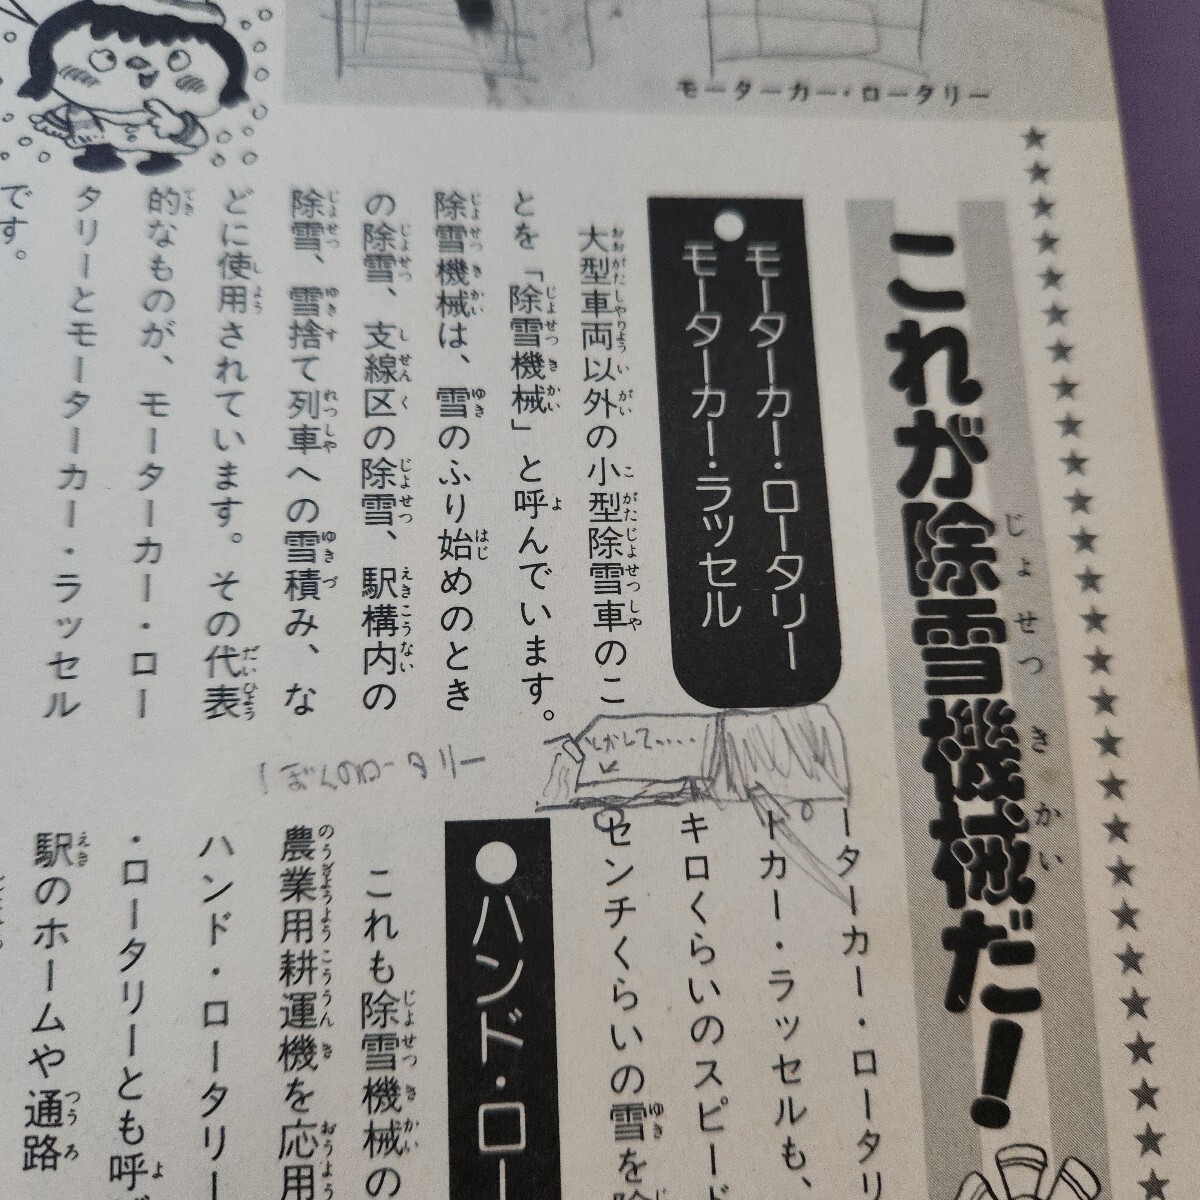 モーターカー・ロータリー
これが除雪機械だ!
じょせつきかい
●モーターカー・ロータリー
モーターカー・ラッセル
大型車両以外の小型除雪車のこ
とを「除雪機械」と呼んでいます。
除雪機械は、雪のふり始めのとき
の除雪、支線区の除雪、駅構内の
除雪、雪捨て列車への雪積み、な
どに使用されています。その代表
的なものが、モーターカー・ロー
タリーとモーターカー・ラッセル
です。
しかして‥‥
ーターカー・ロータリ
トカー・ラッセルも、
キロくらいのスピード
センチくらいの雪を除
●ハンド・ロー
これも除雪機械の
農業用耕運機を応用
ハンド・ロータリー
・ロータリーとも呼
駅のホームや通路